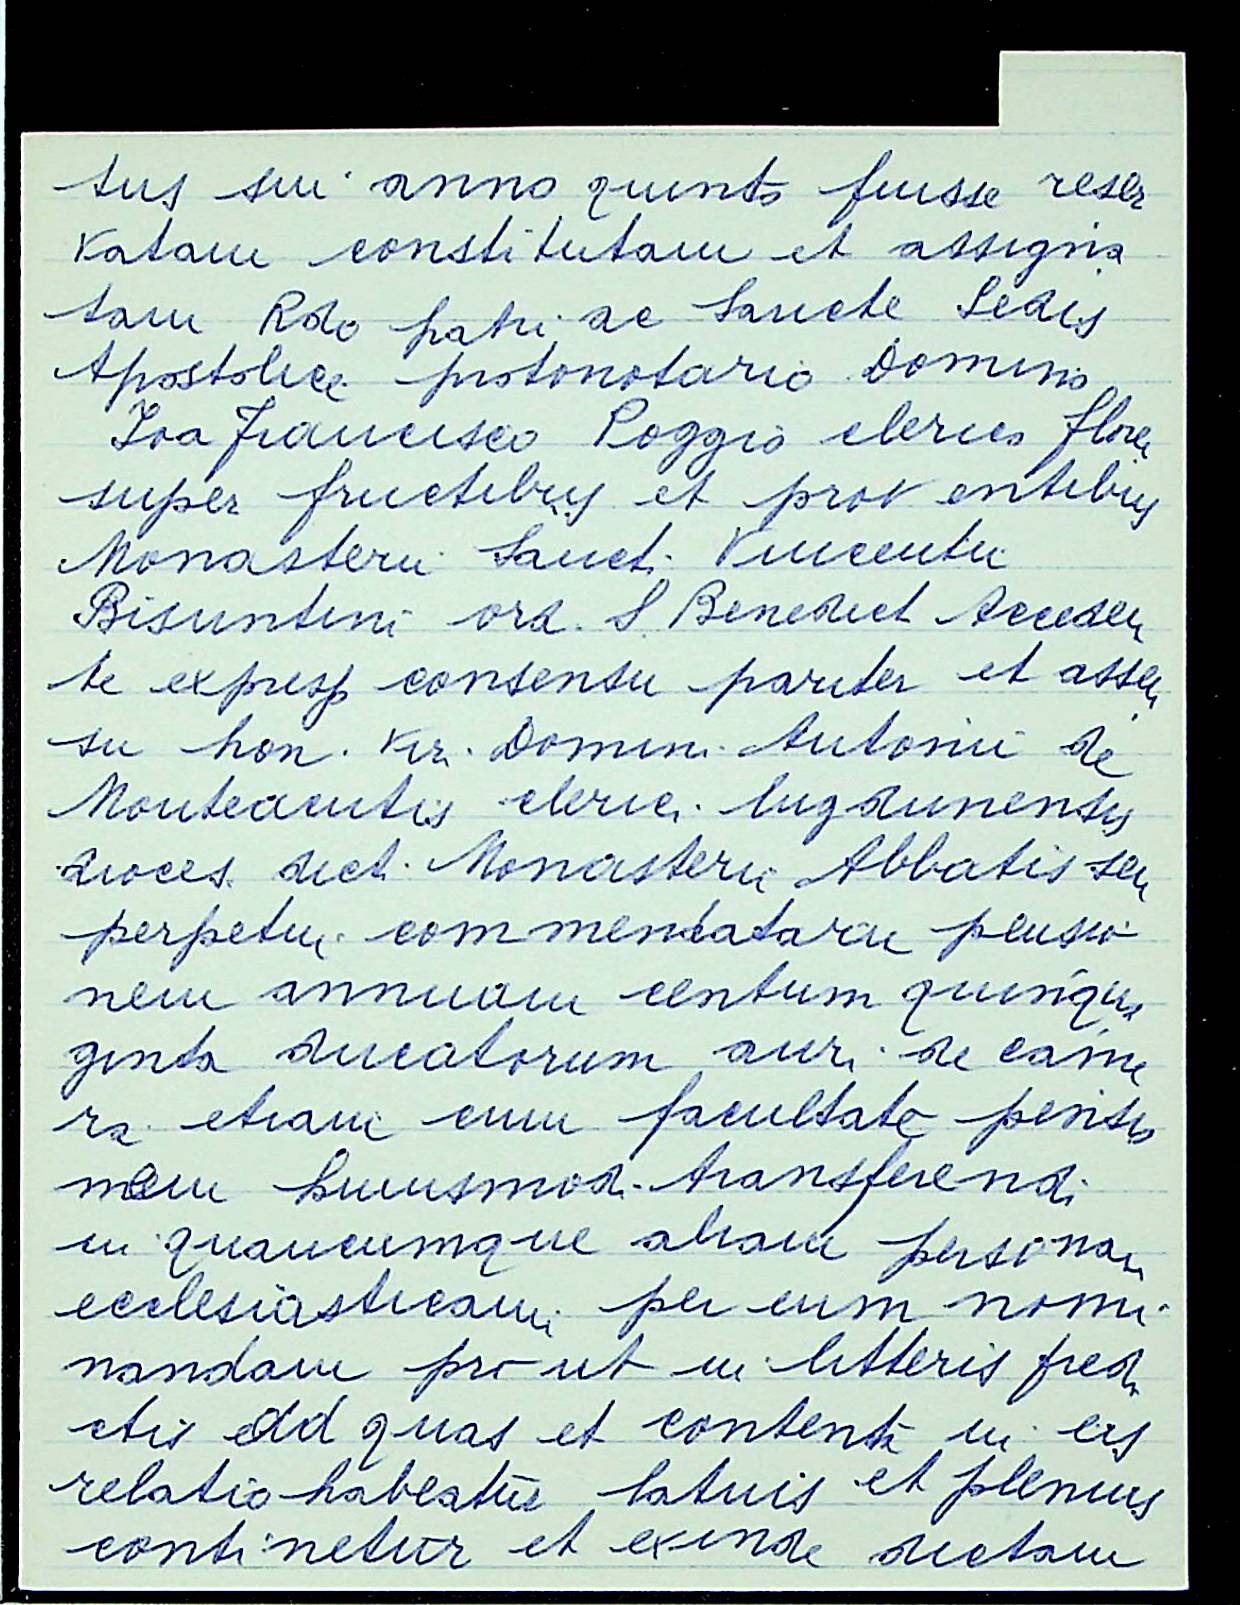 tus sui anno quinto fuisse reser
vatam constitutam et assigna
tam Rdo patri ac Sancte Sedis
Apostolice protonotario Domino
Joa Francisco Poggio clerico floren
super fructibus et prov entibus
Monasterii Sancti Vincentii
Bisuntini ord. S. Benedict Acceden
te expresso consensu pariter et assen
su hon. vir. Domini Antonii de
Monteacutis cleric. lugdunensis
dioces. dict. Monasterii Abbatis seu
perpetui commendatarii pensio
nem annuam centum quinqua
ginta ducatorum auri de came
ra etiam cum facultate pensio
nem huiusmodi transferendi
in quamcumque aliam personam
ecclesiasticam per eum nomi
nandam pro ut in litteris predi
ctis ad quas et contenta in eis
relatio habeatur latius et plenius
continetur et exinde dictam